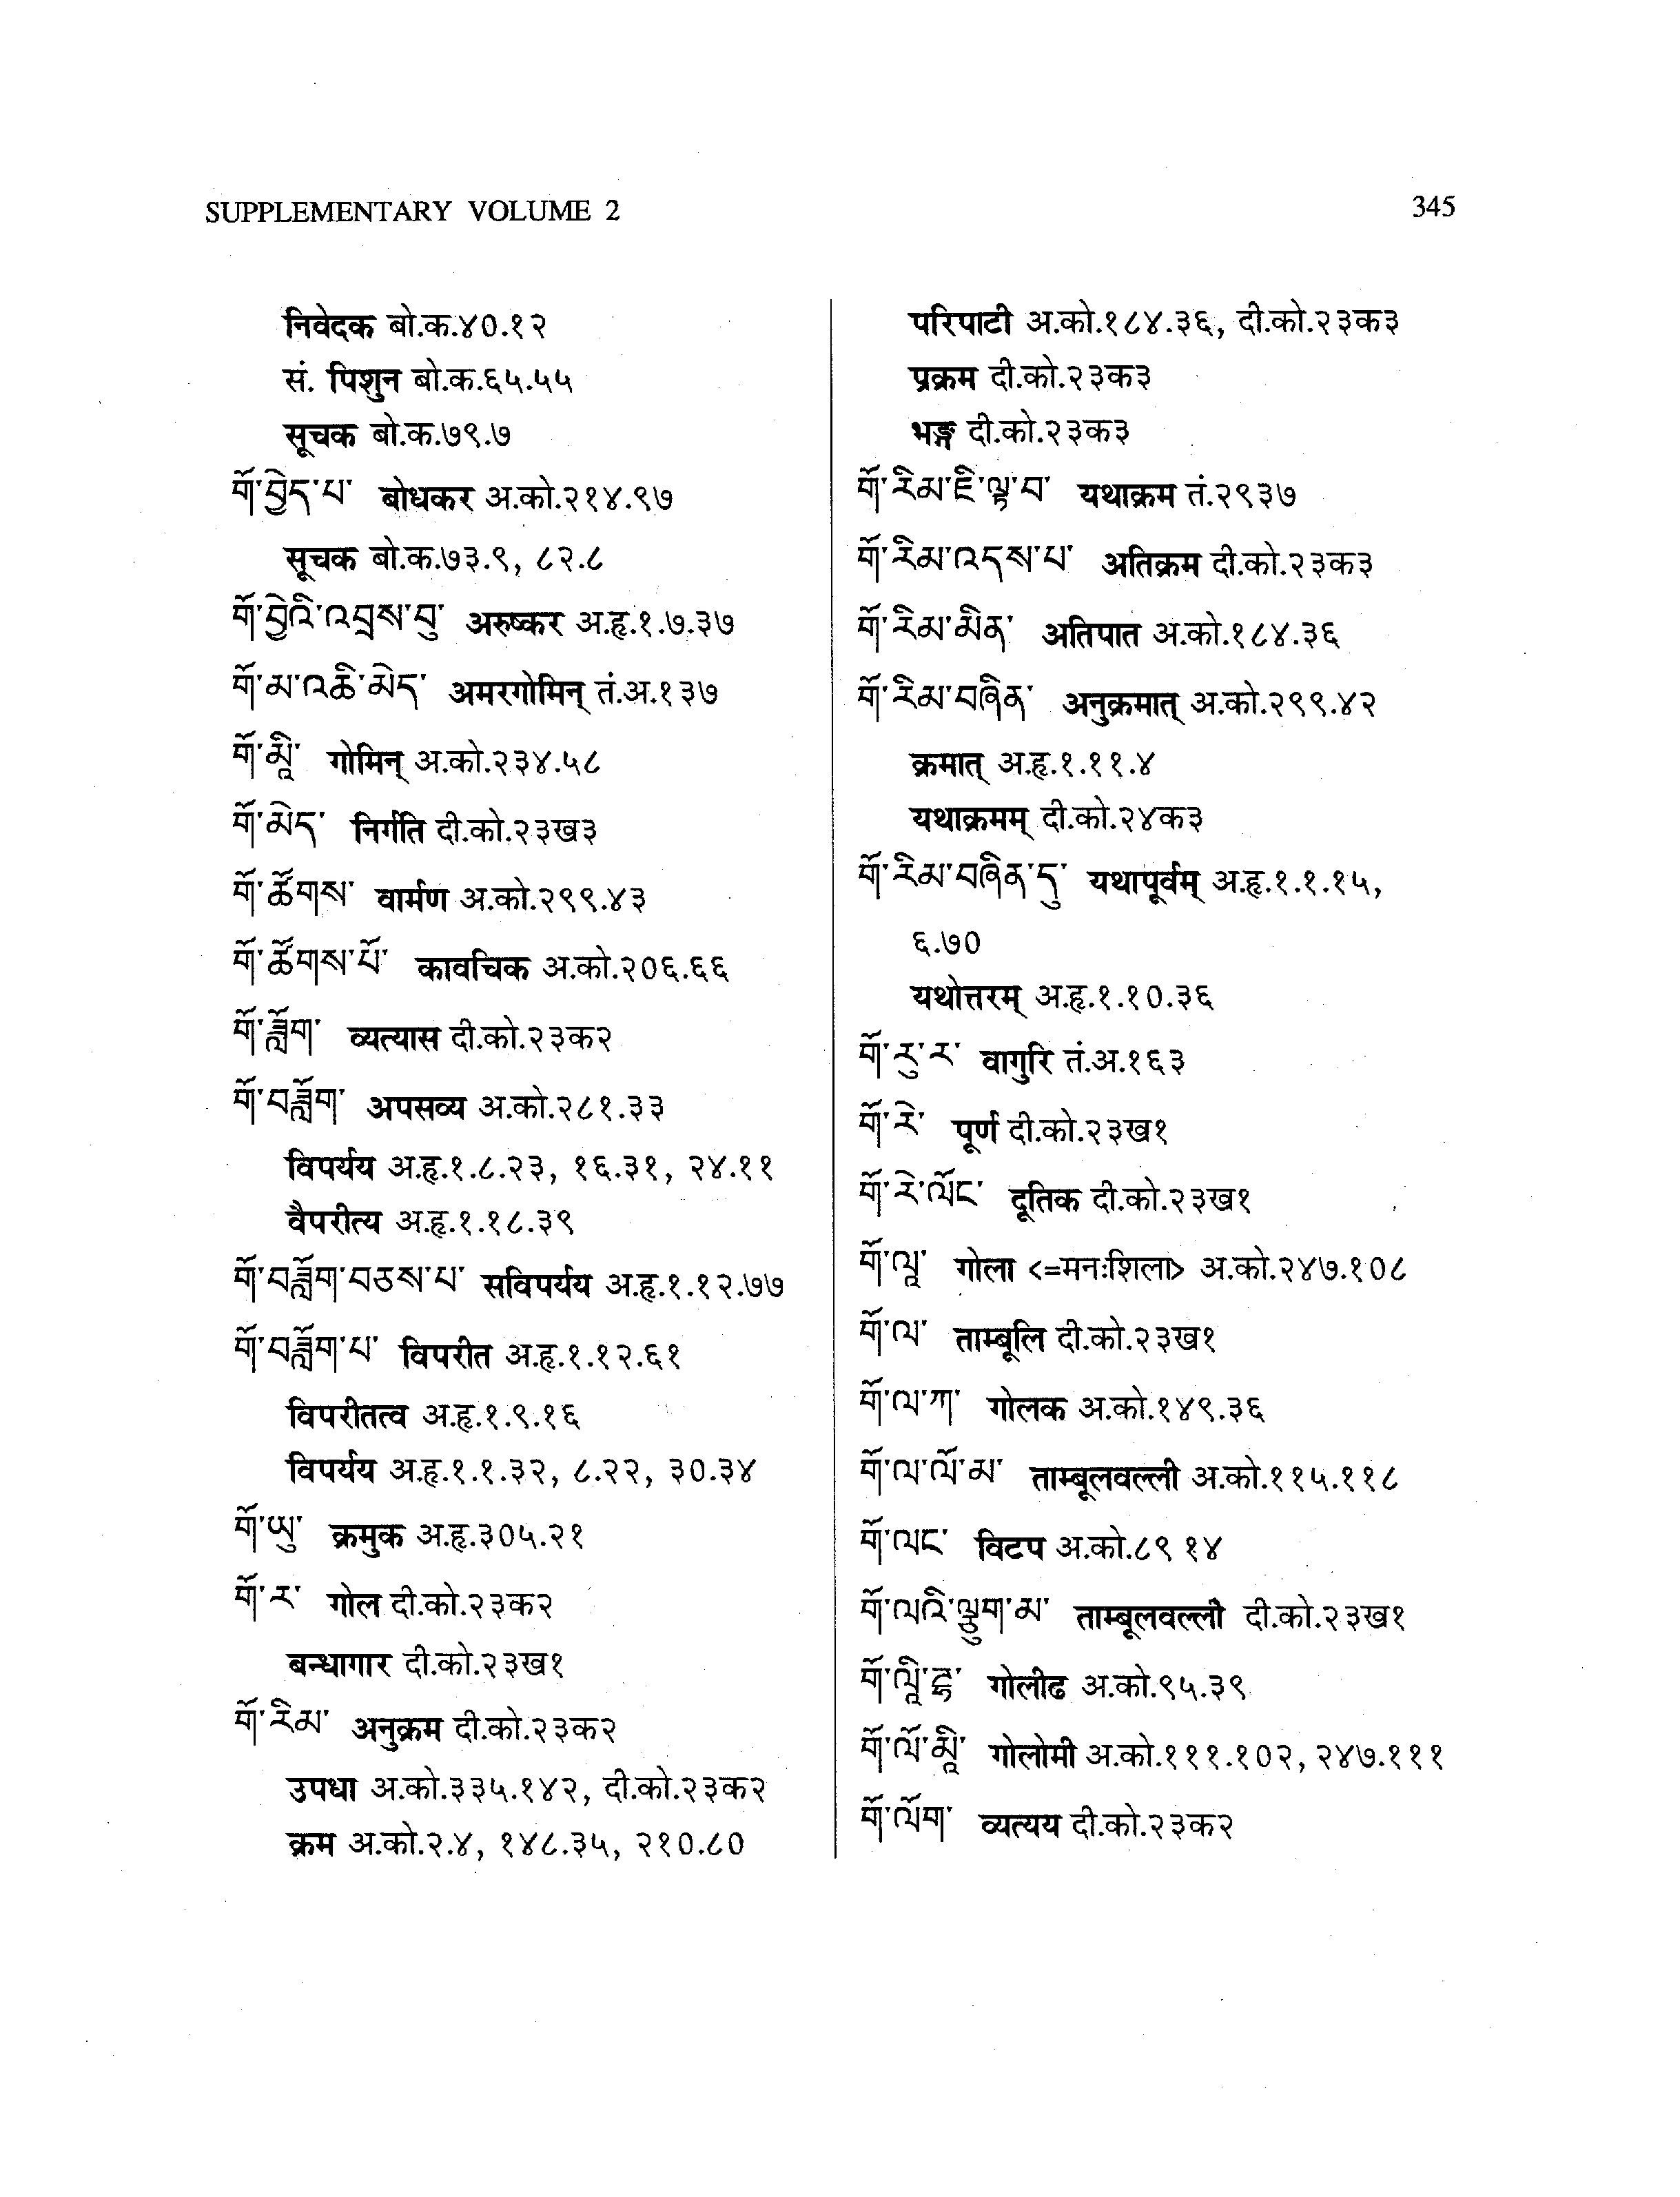 SUPPLEMENTARY VOLUME 2
345
निवेदक बो.क.४०.१२
सं. पिशुन बो.क.६५.५५
सूचक बो.क.७९.७
གོ་བྱེད་པ་ बोधकर अ.को.२१४.९७
सूचक बो.क.७३.९, ८२.८
གོ་བྱེའི་འབྲས་བུ་ अरुष्कर अ.हृ.१.७.३७
གོ་མ་འཆི་མེད་ अमरगोमिन् तं.अ.१३७
གོ་མཱི་ गोमिन् अ.को.२३४.५८
གོ་མེད་ निर्गति दी.को.२३ख३
གོ་ཚོགས་ वार्मण अ.को.२९९.४३
གོ་ཚོགས་པོ་ कावचिक अ.को.२०६.६६
གོ་ཟློག་ व्यत्यास दी.को.२३क२
གོ་བཟློག་ अपसव्य अ.को.२८१.३३
विपर्यय अ.हृ.१.८.२३, १६.३१, २४.११
वैपरीत्य अ.हृ.१.१८.३९
གོ་བཟློག་བཅས་པ་ सविपर्यय अ.हृ.१.१२.७७
གོ་བཟློག་པ་ विपरीत अ.हृ.१.१२.६१
विपरीतत्व अ.हृ.१.९.१६
विपर्यय अ.हृ.१.१.३२, ८.२२, ३०.३४
གོ་ཡུ་ क्रमुक अ.हृ.३०५.२१
གོ་ར་ गोल दी.को.२३क२
बन्धागार दी.को.२३ख१
གོ་རིམ་ अनुक्रम दी.को.२३क२
उपधा अ.को.३३५.१४२, दी.को.२३क२
क्रम अ.को.२.४, १४८.३५, २१०.८०
परिपाटी अ.को.१८४.३६, दी.को.२३क३
प्रक्रम दी.को.२३क३
भङ्ग दी.को.२३क३
གོ་རིམ་ཇི་ལྟ་བ་ यथाक्रम तं.२९३७
གོ་རིམ་འདས་པ་ अतिक्रम दी.को.२३क३
གོ་རིམ་མིན་ अतिपात अ.को.१८४.३६
གོ་རིམ་བཞིན་ अनुक्रमात् अ.को.२९९.४२
क्रमात् अ.हृ.१.११.४
यथाक्रमम् दी.को.२४क३
གོ་རིམ་བཞིན་དུ་ यथापूर्वम् अ.हृ.१.१.१५,
६.७०
यथोत्तरम् अ.हृ.१.१०.३६
གོ་རུ་ར་ वागुरि तं.अ.१६३
གོ་རེ་ पूर्ण दी.को.२३ख१
གོ་རེ་ལོང་ दूतिक दी.को.२३ख१
གོ་ལཱ་ गोला <=मनःशिला> अ.को.२४७.१०८
གོ་ལ་ ताम्बूलि दी.को.२३ख१
གོ་ལ་ཀ་ गोलक अ.को.१४९.३६
གོ་ལ་ལོ་མ་ ताम्बूलवल्ली अ.को.११५.११८
གོ་ལང་ विटप अ.को.८९ १४
གོ་ལའི་ལྕུག་མ་ ताम्बूलवल्ली दी.को.२३ख१
གོ་ལཱི་ཌྷ་ गोलीढ अ.को.९५.३९
གོ་ལོ་མཱི་ गोलोमी अ.को.१११.१०२, २४७.१११
གོ་ལོག་ व्यत्यय दी.को.२३क२